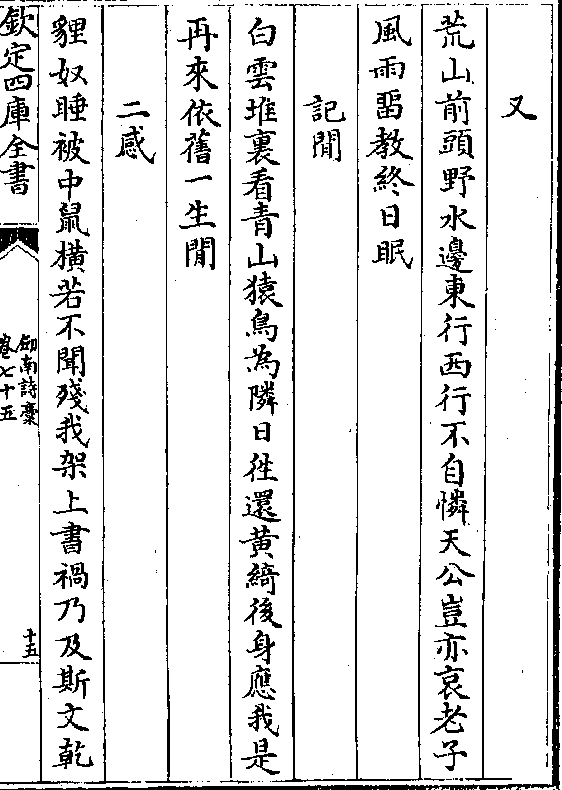 又
荒山前頭野水邊東行西行不自憐天公豈亦哀老子
風雨畱教終日眠
記閒
白雲堆裏看青山猿鳥為隣日徃還黄綺後身應我是
再來依舊一生閒
二感
貍奴睡被中鼠橫若不聞殘我架上書禍乃及斯文乾
欽定四庫全書
劍南詩稾
卷七十五
十五